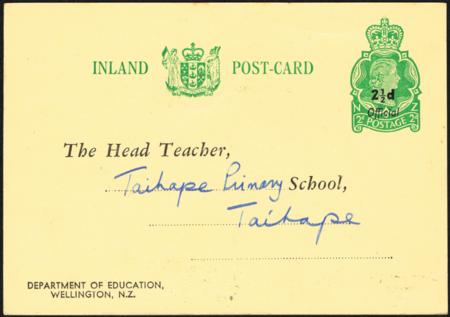 INLAND POST-CARD
2½d
Official
N Z
2d POSTAGE 2d
The Head Teacher,
Taihape Primary School,
Taihape
DEPARTMENT OF EDUCATION,
WELLINGTON, N.Z.